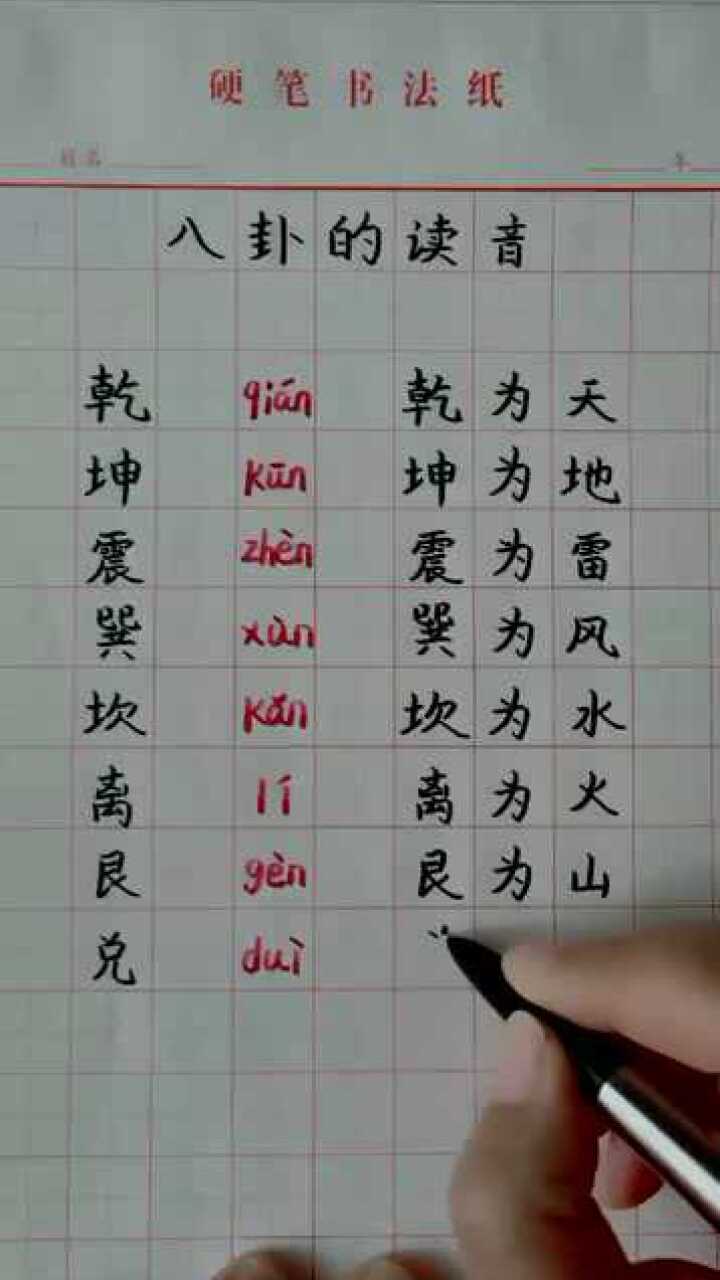 硬笔书法纸
姓名
八卦的读音
乾 qián 乾为天
坤 kūn 坤为地
震 zhèn 震为雷
巽 xùn 巽为风
坎 kǎn 坎为水
离 lí 离为火
艮 gèn 艮为山
兑 duì